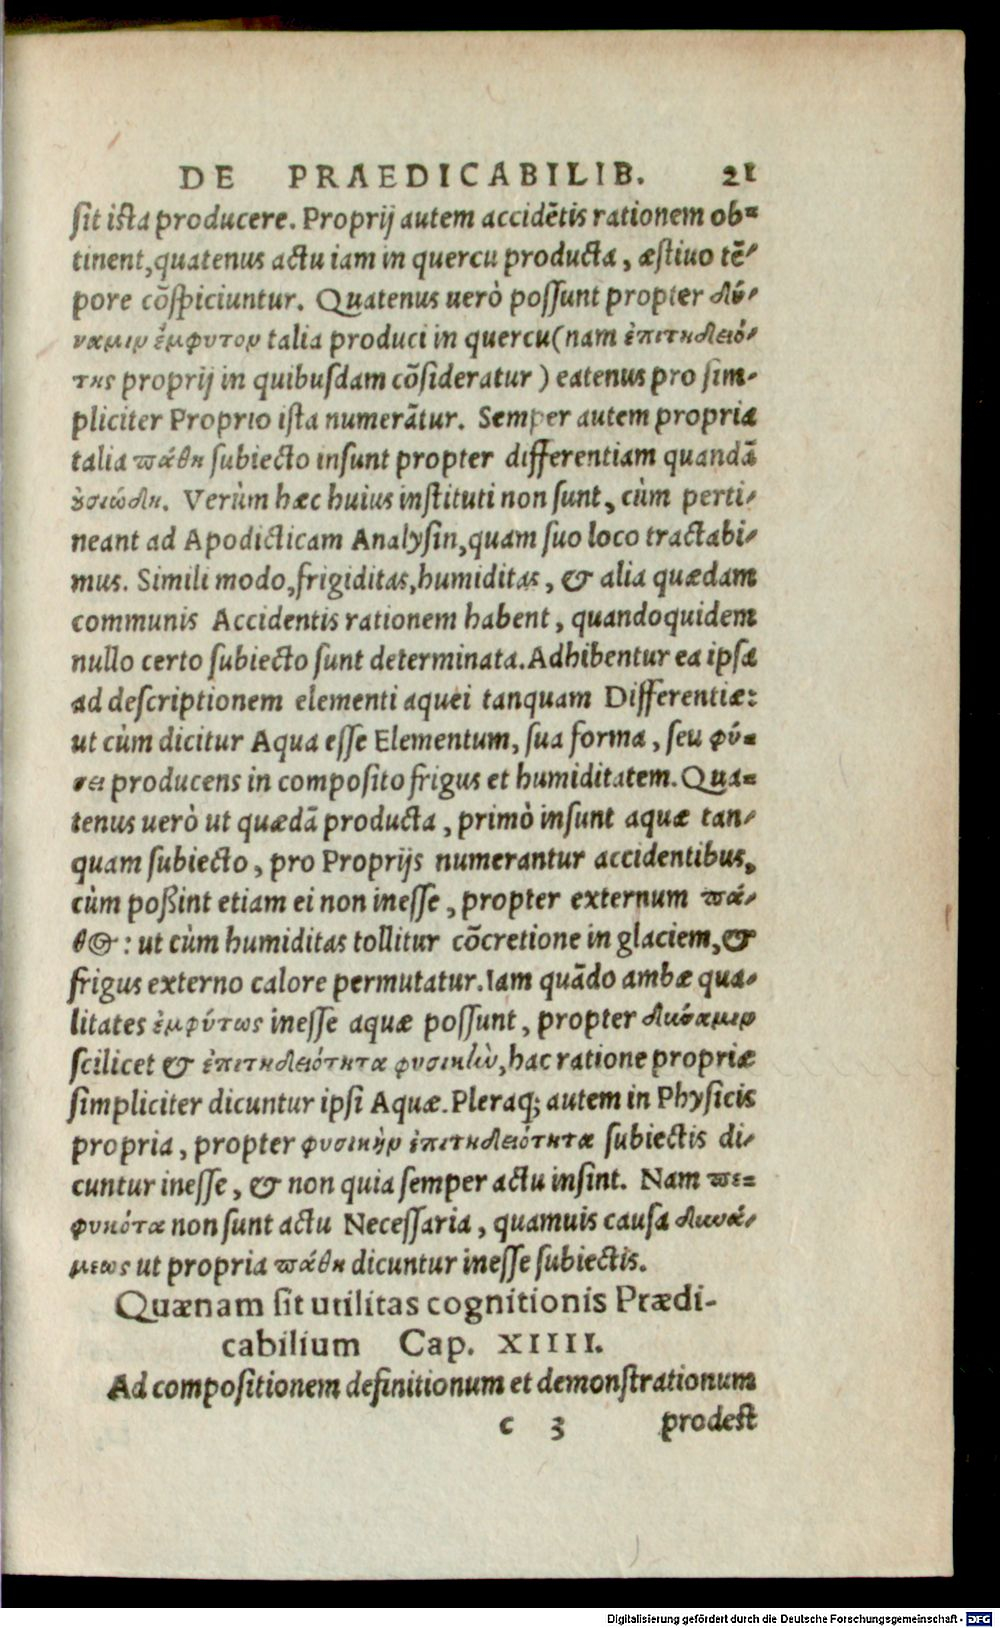 DE PRAEDICABILIB. 21
sit ista producere. Proprij autem accidẽtis rationem ob=
tinent, quatenus actu iam in quercu producta, æstiuo tẽ-
pore cõspiciuntur. Quatenus uerò possunt propter δύ-
ναμιν ἔμφυτον talia produci in quercu (nam ἐπιτηδειό-
της proprij in quibusdam cõsideratur) eatenus pro sim-
pliciter Proprio ista numerãtur. Semper autem propria
talia πάθη subiecto insunt propter differentiam quandã
ȣ̓σιώδη. Verùm hæc huius instituti non sunt, cùm perti-
neant ad Apodicticam Analysin, quam suo loco tractabi-
mus. Simili modo, frigiditas, humiditas, & alia quædam
communis Accidentis rationem habent, quandoquidem
nullo certo subiecto sunt determinata. Adhibentur ea ipsa
ad descriptionem elementi aquei tanquam Differentiæ:
ut cùm dicitur Aqua esse Elementum, sua forma, seu φύ=
σει producens in composito frigus et humiditatem. Qua=
tenus uerò ut quædã producta, primò insunt aquæ tan-
quam subiecto, pro Proprijs numerantur accidentibus,
cùm poßint etiam ei non inesse, propter externum πά-
θος: ut cùm humiditas tollitur cõcretione in glaciem, &
frigus externo calore permutatur. Iam quãdo ambæ qua-
litates ἐμφύτως inesse aquæ possunt, propter δύναμιν
scilicet & ἐπιτηδειότητα φυσικὴν, hac ratione propriæ
simpliciter dicuntur ipsi Aquæ. Pleraq; autem in Physicis
propria, propter φυσικὴν ἐπιτηδειότητα subiectis di-
cuntur inesse, & non quia semper actu insint. Nam πε=
φυκότα non sunt actu Necessaria, quamuis causa δυνά-
μεως ut propria πάθη dicuntur inesse subiectis.
Quænam sit utilitas cognitionis Prædi-
cabilium Cap. XIIII.
Ad compositionem definitionum et demonstrationum
c 3 prodest
Digitalisierung gefördert durch die Deutsche Forschungsgemeinschaft - DFG